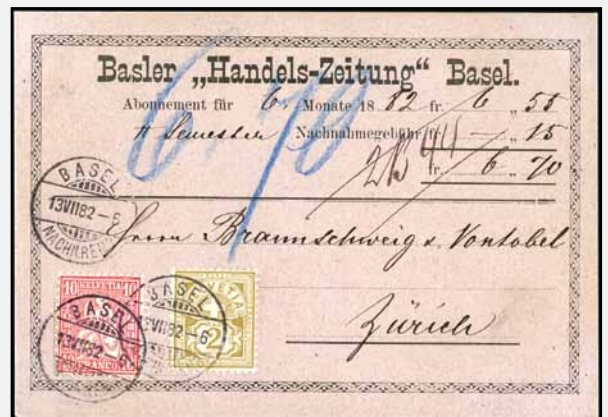 Basler „Handels-Zeitung“ Basel.
Abonnement für 6. Monate 18 82 fr. 6 „ 55
II Semester Nachnahmegebühr fr. — „ 15
fr. 6 „ 70
6.70
BASEL
13 VII 82 – 6
Herrn Braunschweig & Vontobel
Zürich
10 HELVETIA 10
FRANCO
HELVETIA
2
BASEL
13 VII 82 – 6
BASEL
13 VII 82 – 6